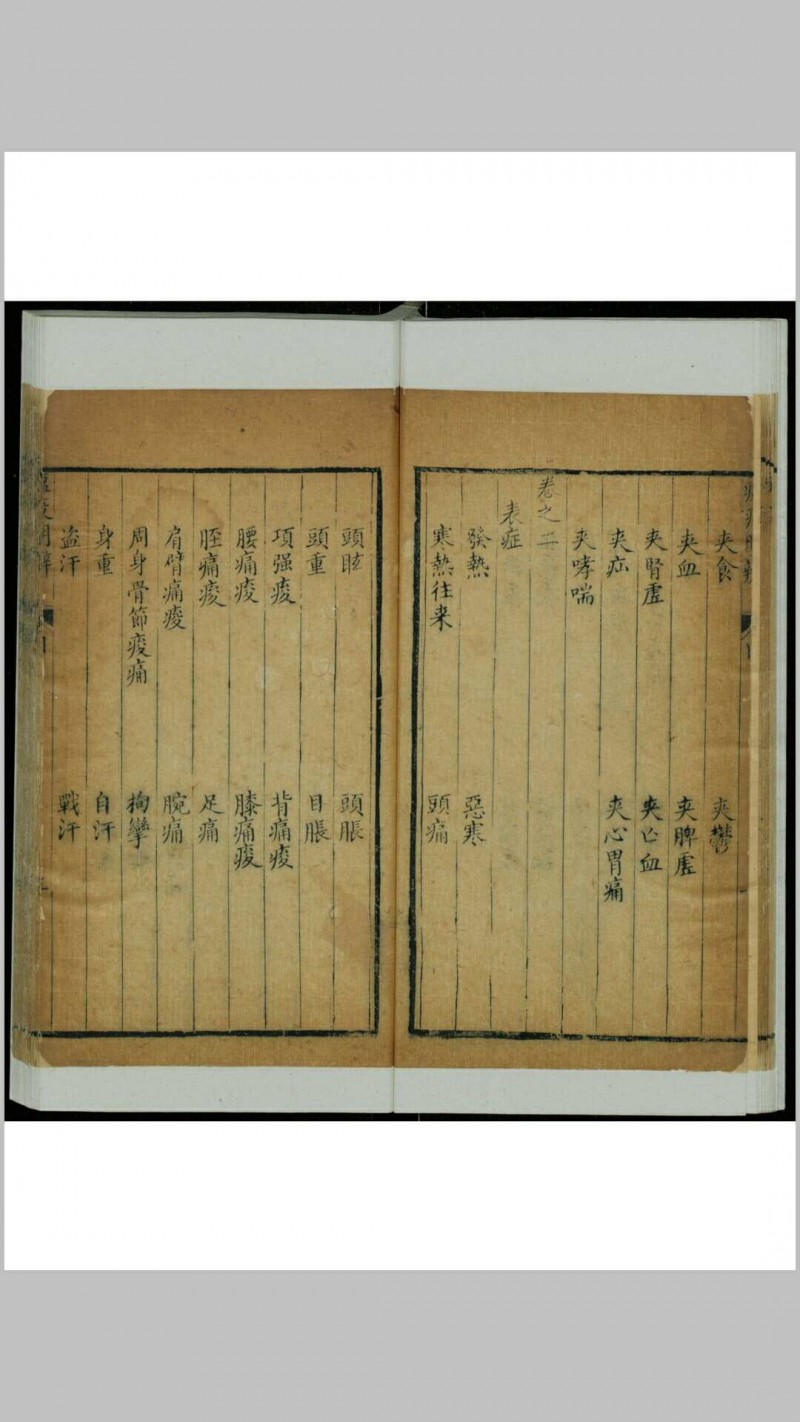 夾食 夾鬱
夾血 夾脾虛
夾腎虛 夾亡血
夾疝 夾心胃痛
夾哮喘
卷之二
表症
發熱 惡寒
寒熱往来 頭痛
頭眩 頭脹
頭重 目脹
項强痠 背痛痠
腰痛痠 膝痛痠
脛痛痠 足痛
肩臂痛痠 腕痛
周身骨節痠痛 拘攣
身重 自汗
盗汗 戰汗